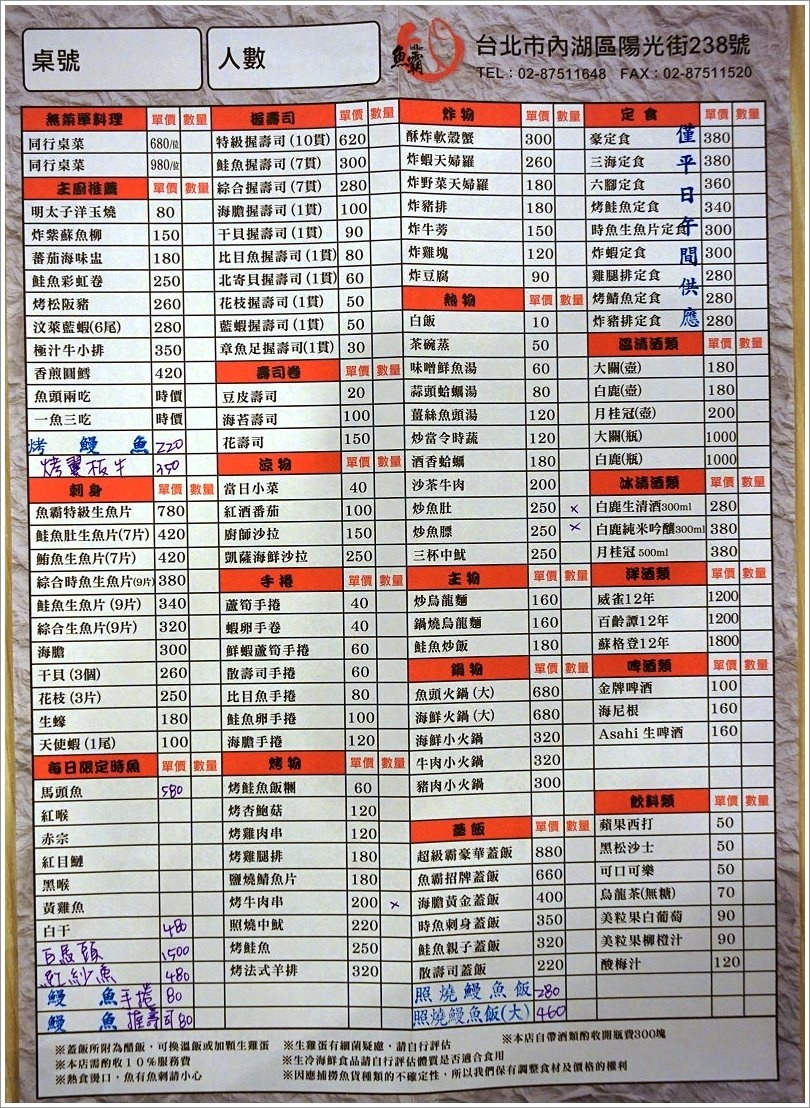 桌號
人數
魚霸
台北市內湖區陽光街238號
TEL：02-87511648 FAX：02-87511520
無菜單料理 單價 數量
同行桌菜 680/位
同行桌菜 980/位
主廚推薦 單價 數量
明太子洋玉燒 80
炸紫蘇魚柳 150
蕃茄海味盅 180
鮭魚彩虹卷 250
烤松阪豬 260
汶萊藍蝦(6尾) 280
極汁牛小排 350
香煎圓鱈 420
魚頭兩吃 時價
一魚三吃 時價
烤鰻魚 220
烤翼板牛 350
刺身 單價 數量
魚霸特級生魚片 780
鮭魚肚生魚片(7片) 420
鮪魚生魚片(7片) 420
綜合時魚生魚片(9片) 380
鮭魚生魚片(9片) 340
綜合生魚片(9片) 320
海膽 300
干貝(3個) 260
花枝(3片) 250
生蠔 180
天使蝦(1尾) 100
每日限定時魚 單價 數量
馬頭魚 580
紅喉
赤宗
紅目鰱
黑喉
黃雞魚
白干 480
白馬頭 1500
紅紗魚 480
鰻魚手捲 80
鰻魚握壽司 80
握壽司 單價 數量
特級握壽司(10貫) 620
鮭魚握壽司(7貫) 300
綜合握壽司(7貫) 280
海膽握壽司(1貫) 100
干貝握壽司(1貫) 90
比目魚握壽司(1貫) 80
北寄貝握壽司(1貫) 60
花枝握壽司(1貫) 50
藍蝦握壽司(1貫) 50
章魚足握壽司(1貫) 30
壽司卷 單價 數量
豆皮壽司 20
海苔壽司 100
花壽司 150
涼物 單價 數量
當日小菜 40
紅酒番茄 100
廚師沙拉 150
凱薩海鮮沙拉 250
手捲 單價 數量
蘆筍手捲 40
蝦卵手卷 40
鮮蝦蘆筍手捲 60
散壽司手捲 60
比目魚手捲 80
鮭魚卵手捲 100
海膽手捲 120
烤物 單價 數量
烤鮭魚飯糰 60
烤杏鮑菇 120
烤雞肉串 120
烤雞腿排 180
鹽燒鯖魚片 180
烤牛肉串 200 ×
照燒中魷 220
烤鮭魚 250
烤法式羊排 320
炸物 單價 數量
酥炸軟殼蟹 300
炸蝦天婦羅 260
炸野菜天婦羅 180
炸豬排 180
炸牛蒡 150
炸雞塊 120
炸豆腐 90
熱物 單價 數量
白飯 10
茶碗蒸 50
味噌鮮魚湯 60
蒜頭蛤蠣湯 80
薑絲魚頭湯 120
炒當令時蔬 120
酒香蛤蠣 180
沙茶牛肉 200
炒魚肚 250 ×
炒魚膘 250 ×
三杯中魷 250
主物 單價 數量
炒烏龍麵 160
鍋燒烏龍麵 160
鮭魚炒飯 180
鍋物 單價 數量
魚頭火鍋(大) 680
海鮮火鍋(大) 680
海鮮小火鍋 320
牛肉小火鍋 320
豬肉小火鍋 300
蓋飯 單價 數量
超級霸豪華蓋飯 880
魚霸招牌蓋飯 660
海膽黃金蓋飯 400
時魚刺身蓋飯 350
鮭魚親子蓋飯 320
散壽司蓋飯 220
照燒鰻魚飯 280
照燒鰻魚飯(大) 460
定食 單價 數量
僅平日午間供應
豪定食 380
三海定食 380
六腳定食 360
烤鮭魚定食 340
時魚生魚片定食 300
炸蝦定食 300
雞腿排定食 280
烤鯖魚定食 280
炸豬排定食 280
溫清酒類 單價 數量
大關(壺) 180
白鹿(壺) 180
月桂冠(壺) 200
大關(瓶) 1000
白鹿(瓶) 1000
冰清酒類 單價 數量
白鹿生清酒300ml 280
白鹿純米吟釀300ml 380
月桂冠 500ml 380
洋酒類 單價 數量
威雀12年 1200
百齡譚12年 1200
蘇格登12年 1800
啤酒類 單價 數量
金牌啤酒 100
海尼根 160
Asahi 生啤酒 160
飲料類 單價 數量
蘋果西打 50
黑松沙士 50
可口可樂 50
烏龍茶(無糖) 70
美粒果白葡萄 90
美粒果柳橙汁 90
酸梅汁 120
※蓋飯所附為醋飯，可換溫飯或加顆生雞蛋 ※生雞蛋有細菌疑慮，請自行評估 ※本店自帶酒類酌收開瓶費300塊
※本店需酌收１０%服務費 ※生冷海鮮食品請自行評估體質是否適合食用
※熱食燙口，魚有魚刺請小心 ※因應捕撈魚貨種類的不確定性，所以我們保有調整食材及價格的權利